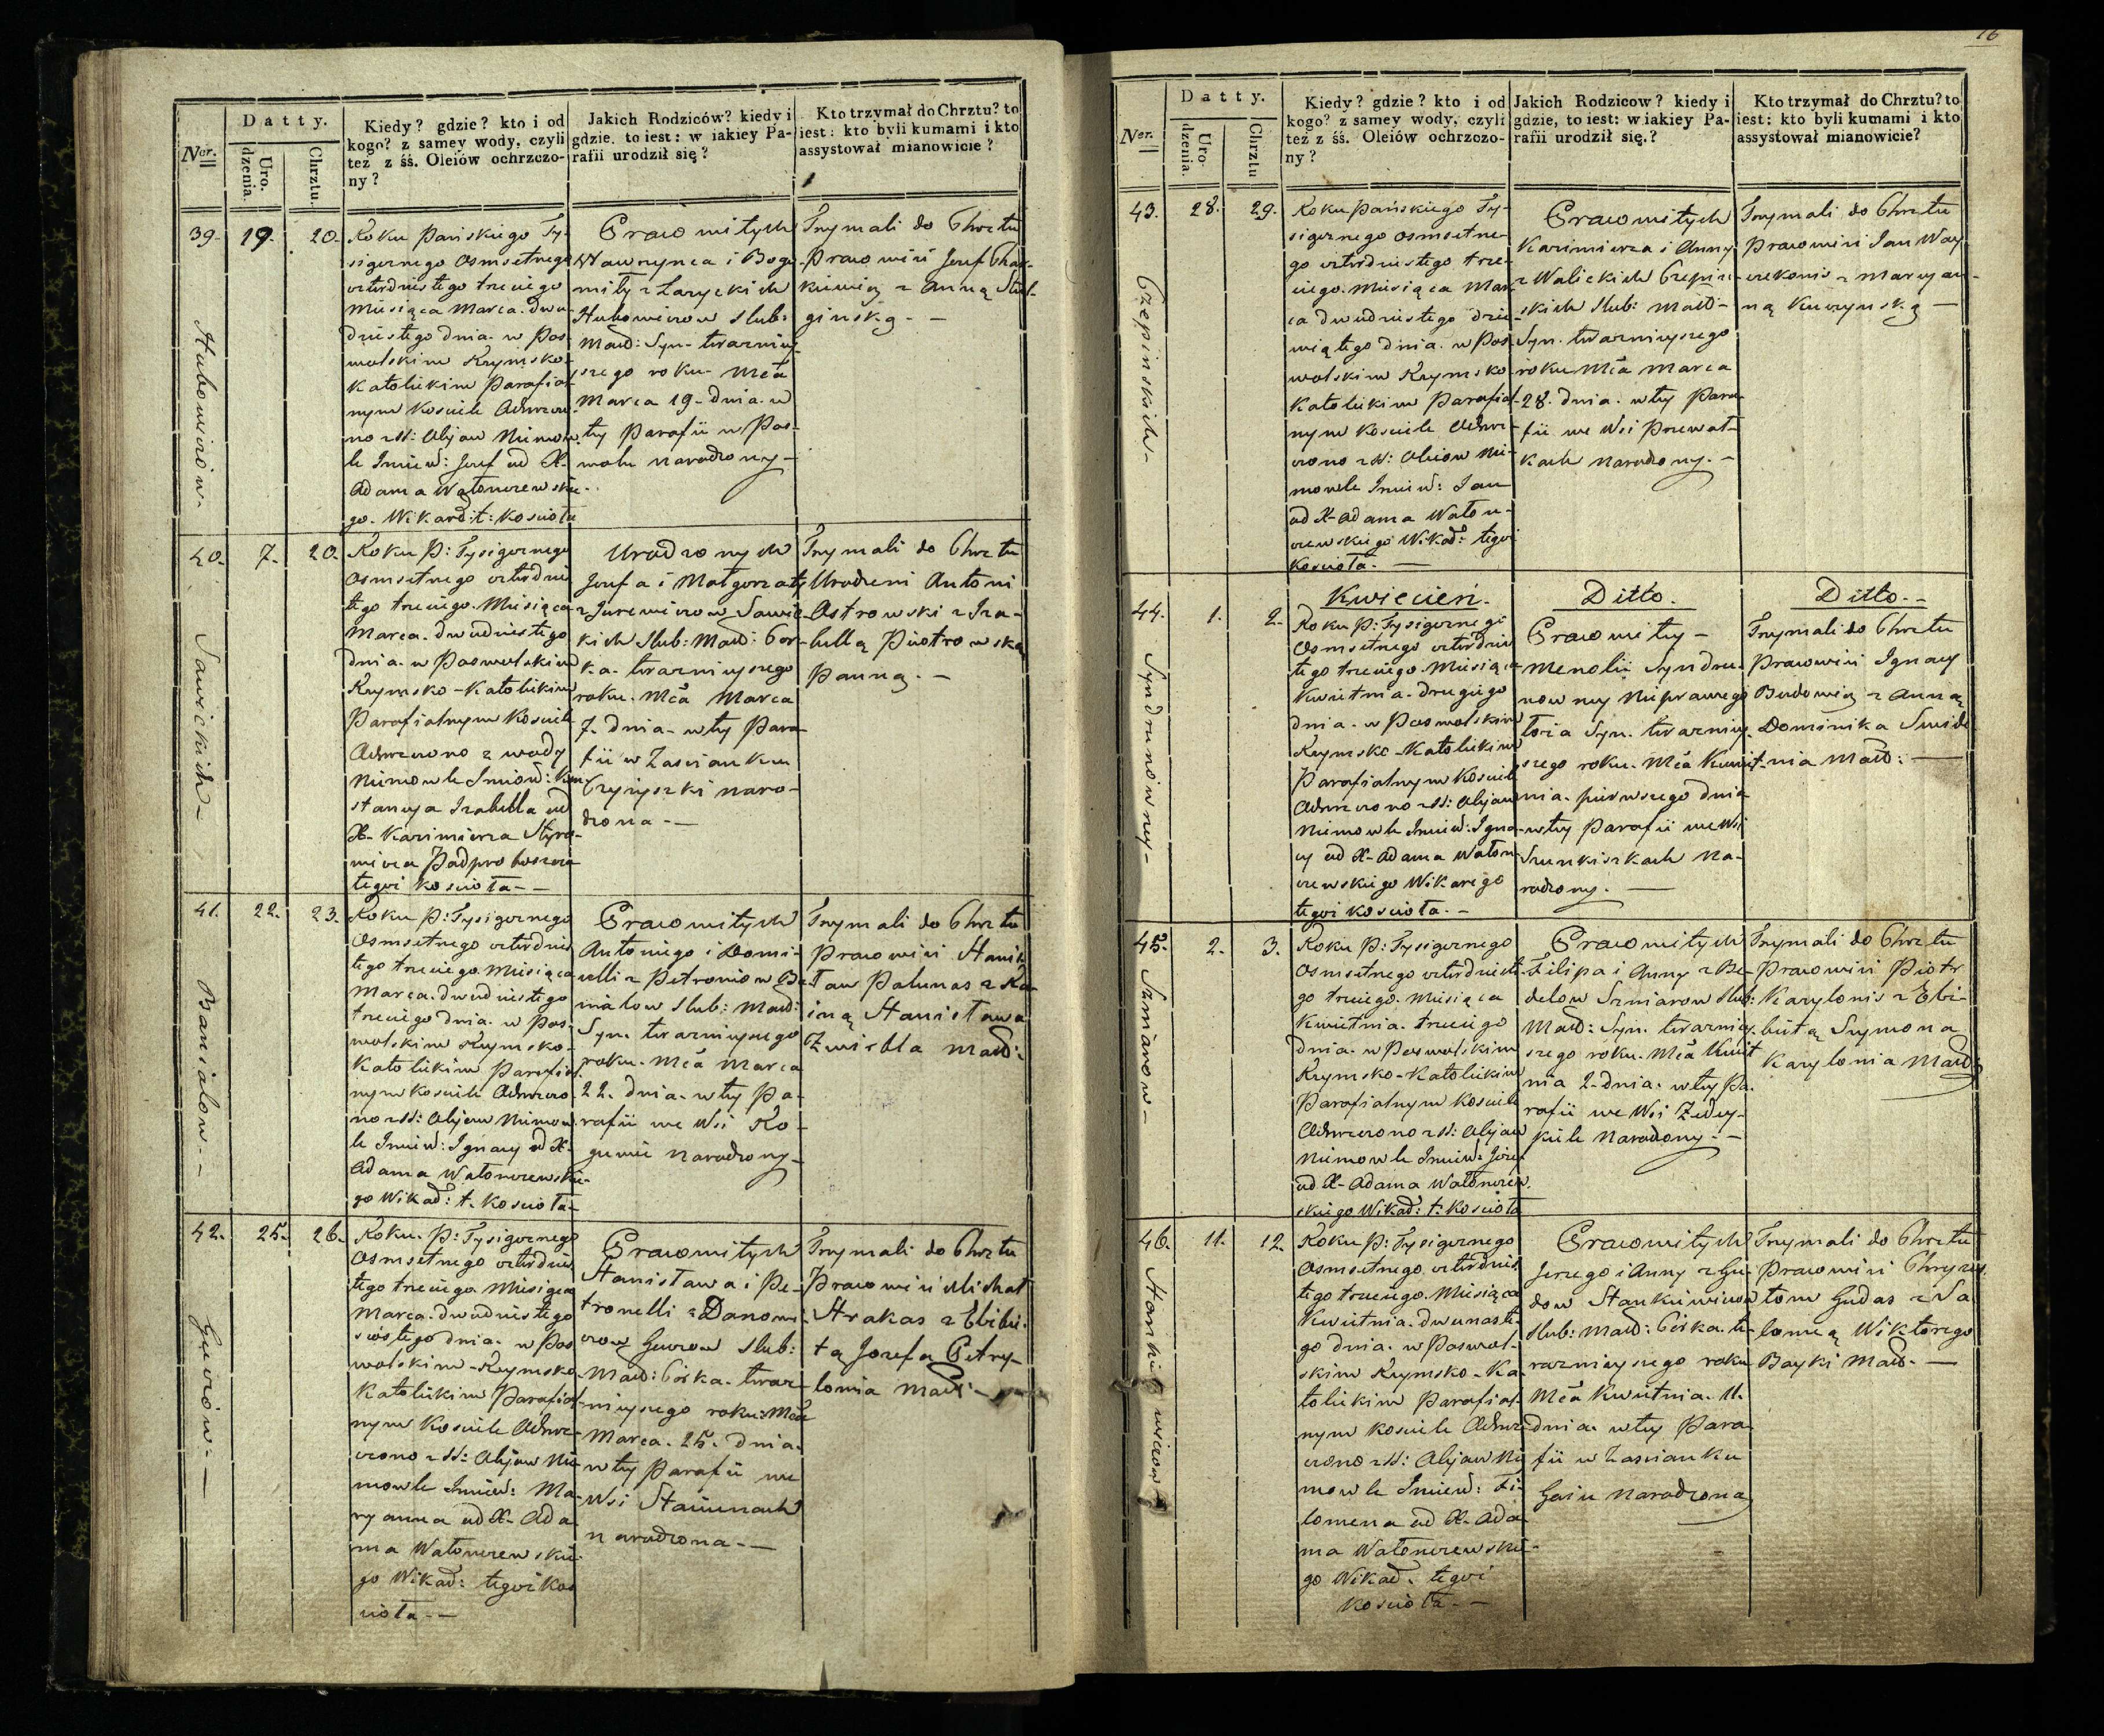 Datty.
Ner.
Uro-dzenia.
Chrztu.
Kiedy? gdzie? kto i od
kogo? z samey wody, czyli
też z śś. Oleiów ochrzczo-
ny?
Jakich Rodziców? kiedy i
gdzie, to iest: w iakiey Pa-
rafii urodził się?
Kto trzymał do Chrztu? to
iest: kto byli kumami i kto
assystował mianowicie?
39.
19.
20.
Roku Pańskiego Ty-
sięcznego Osmsetnego
czterdziestego trzeciego
Miesiąca Marca dwu-
dziestego dnia w Pos-
wolskim Rzymsko-
Katolickim Parafial-
nym Kosciele Ochrzczo-
no z SS: Olejów Niemow-
le Imien: Jozef od X.
Adama Watonczewskie-
go Wikard: t: Kosciola
Prawowitych
Wawrzynca i Bogu-
miły z
Slub:
Małż: Syn teraźniey-
szego roku Mca
Marca 19 dnia w
tey Parafii w Pos-
wolu narodzony
Trzymali do Chrztu
Prawowici Jozef
z Anną
40.
7.
20.
Sawickich
Roku P: Tysięcznego
Osmsetnego czterdzies-
tego trzeciego Miesiąca
Marca dwudziestego
dnia w Poswolskim
Rzymsko-Katolickim
Parafialnym Kosciele
Ochrzczono z wody
Niemowle Imion: Kon-
stancya Izabella od
X. Kazimierza
Podproboszcza
tegoż kosciola
Urodzonych
Jozefa i Małgorzaty
z Jurewiczow Sawic-
kich Slub: Małż: Cor-
ka teraźnieyszego
roku Mca Marca
7 dnia w tey Para-
fii w Zascianku
naro-
dzona
Trzymali do Chrztu
Urodzeni Antoni
Ostrowski z Iza-
bellą Piotrowską
Panną
41.
22.
23.
Banialow
Roku P: Tysięcznego
Osmsetnego czterdzies-
tego trzeciego Miesiąca
Marca dwudziestego
trzeciego dnia w Pos-
wolskim Rzymsko-
Katolickim Parafial-
nym Kosciele Ochrzczo-
no z SS: Olejow Niemow-
le Imien: Ignacy od X.
Adama Watonczewskie-
go Wikad: t. Kosciola
Prawowitych
Antoniego i Domi-
celli z Petroniow Ba-
nialow Slub: Małż:
Syn teraźnieyszego
roku Mca Marca
22 dnia w tey Pa-
rafii we Wsi
narodzony
Trzymali do Chrztu
Prawowici Stanis-
ław Palunas z
Stanisława
Zwirbla Małż:
42.
25.
26.
Roku P: Tysięcznego
Osmsetnego czterdzies-
tego trzeciego Miesiąca
Marca dwudziestego
szóstego dnia w Pos-
wolskim Rzymsko
Katolickim Parafial-
nym Kosciele Ochrz-
czono z SS: Olejow Nie-
mowle Imien: Ma-
ryanna od X. Ada-
ma Watonczewskie-
go Wikad: tegoż Kos-
ciola
Prawowitych
Stanisława i Pe-
tronelli z
Slub:
Małż: Córka teraz-
nieyszego roku Mca
Marca 25 dnia
w tey Parafii we
Wsi
narodzona
Trzymali do Chrztu
Prawowici Michał
Strakas z Elżbie-
tą Jozefa Petry-
lonia Małż:
16
Datty.
Ner.
Uro-dzenia.
Chrztu
Kiedy? gdzie? kto i od
kogo? z samey wody, czyli
też z śś. Oleiów ochrzczo-
ny?
Jakich Rodzicow? kiedy i
gdzie, to iest: w iakiey Pa-
rafii urodził się.?
Kto trzymał do Chrztu? to
iest: kto byli kumami i kto
assystował mianowicie?
43.
28.
29.
Czepinskich
Roku Pańskiego Ty-
sięcznego Osmsetne-
go czterdziestego trze-
ciego Miesiąca Mar-
ca dwudziestego dzie-
wiątego dnia w Pos-
wolskim Rzymsko
Katolickim Parafial-
nym Kosciele Ochrz-
czono z SS: Olejow Nie-
mowle Imien: Jan
od X. Adama Waton-
czewskiego Wikad: tegoż
Kosciola.
Prawowitych
Kazimierza i Anny
z Walickich Czepin-
skich Slub: Małż:
Syn teraźnieyszego
roku Mca Marca
28 dnia w tey Para-
fii we Wsi Przewal-
kach narodzony.
Trzymali do Chrztu
Prawowici Jan Way-
ciekonis z Maryan-
ną
44.
1.
2.
Syndrunówney
Kwiecień.
Roku P: Tysięcznego
Osmsetnego czterdzies-
tego trzeciego Miesiąca
Kwietnia drugiego
dnia w Poswolskim
Rzymsko-Katolickim
Parafialnym Kosciele
Ochrzczono z SS: Olejow
Niemowle Imien: Igna-
cy od X. Adama Waton-
czewskiego Wikarego
tegoż kosciola.
Ditto.
Prawowitey
Syndru-
nowney Nieprawego
Łoża Syn teraźniey-
szego roku Mca Kwiet-
nia pierwszego dnia
w tey Parafii we Wsi
na-
rodzony.
Ditto.
Trzymali do Chrztu
Prawowici Ignacy
z Anną
Dominika
Małż:
45.
2.
3.
Szniarow
Roku P: Tysięcznego
Osmsetnego czterdzieste-
go trzeciego Miesiąca
Kwietnia trzeciego
dnia w Poswolskim
Rzymsko-Katolickim
Parafialnym Kosciele
Ochrzczono z SS: Olejow
Niemowle Imien: Jozef
od X. Adama Watonczew-
skiego Wikad: t. Kosciola
Prawowitych
Filipa i Anny z Be-
delow Szniarow Slub:
Małż: Syn teraźniey-
szego roku Mca Kwiet-
nia 2 dnia w tey Pa-
rafii we Wsi
narodzony
Trzymali do Chrztu
Prawowici Piotr
Karylonis z Elż-
bietą Szymona
Karylonia Małż:
46.
11.
12.
Stankiewiczow
Roku P: Tysięcznego
Osmsetnego czterdzies-
tego trzeciego Miesiąca
Kwietnia dwunaste-
go dnia w Poswol-
skim Rzymsko-Ka-
tolickim Parafial-
nym kosciele Ochrz-
czono z SS: Olejow Nie-
mowle Imien: Fi-
lomena od X. Ada-
ma Watonczewskie-
go Wikad: tegoż
Kosciola.
Prawowitych
Jerzego i Anny z Gu-
dow Stankiewiczow
Slub: Małż: Córka te-
raznieyszego roku
Mca Kwietnia 11.
dnia w tey Para-
fii w Zascianku
Gaiu narodzona
Trzymali do Chrztu
Prawowici Chryzos-
tom Gudas z Sa-
lomeą Wiktorego
Bayki Małż.